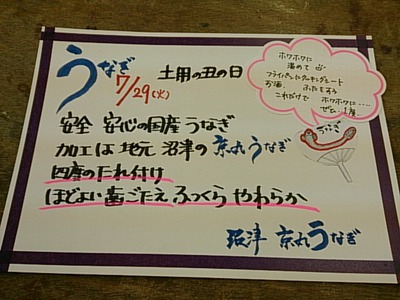 うなぎ
7/29(火)
土用の丑の日
ホクホクに
温めて
フライパンにクッキングシート
お酒、おたもすう
これだけで ホクホクに・・・・
ぜひ 1度
安全 安心の国産 うなぎ
加工は 地元 沼津の 京丸うなぎ
四度のたれ付け
ほどよい歯ごたえ ふっくら やわらか
うなぎ
沼津 京丸うなぎ